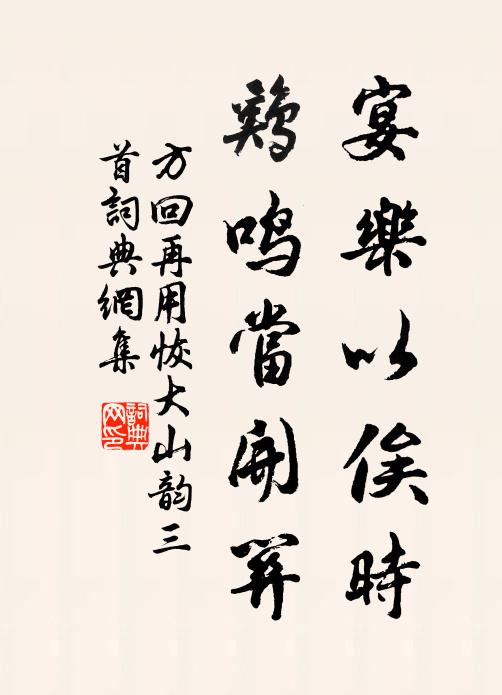 宴樂以俟時
鷄鳴當開關
方回再用恢大山韵三
首詞典網集
詞典
网印